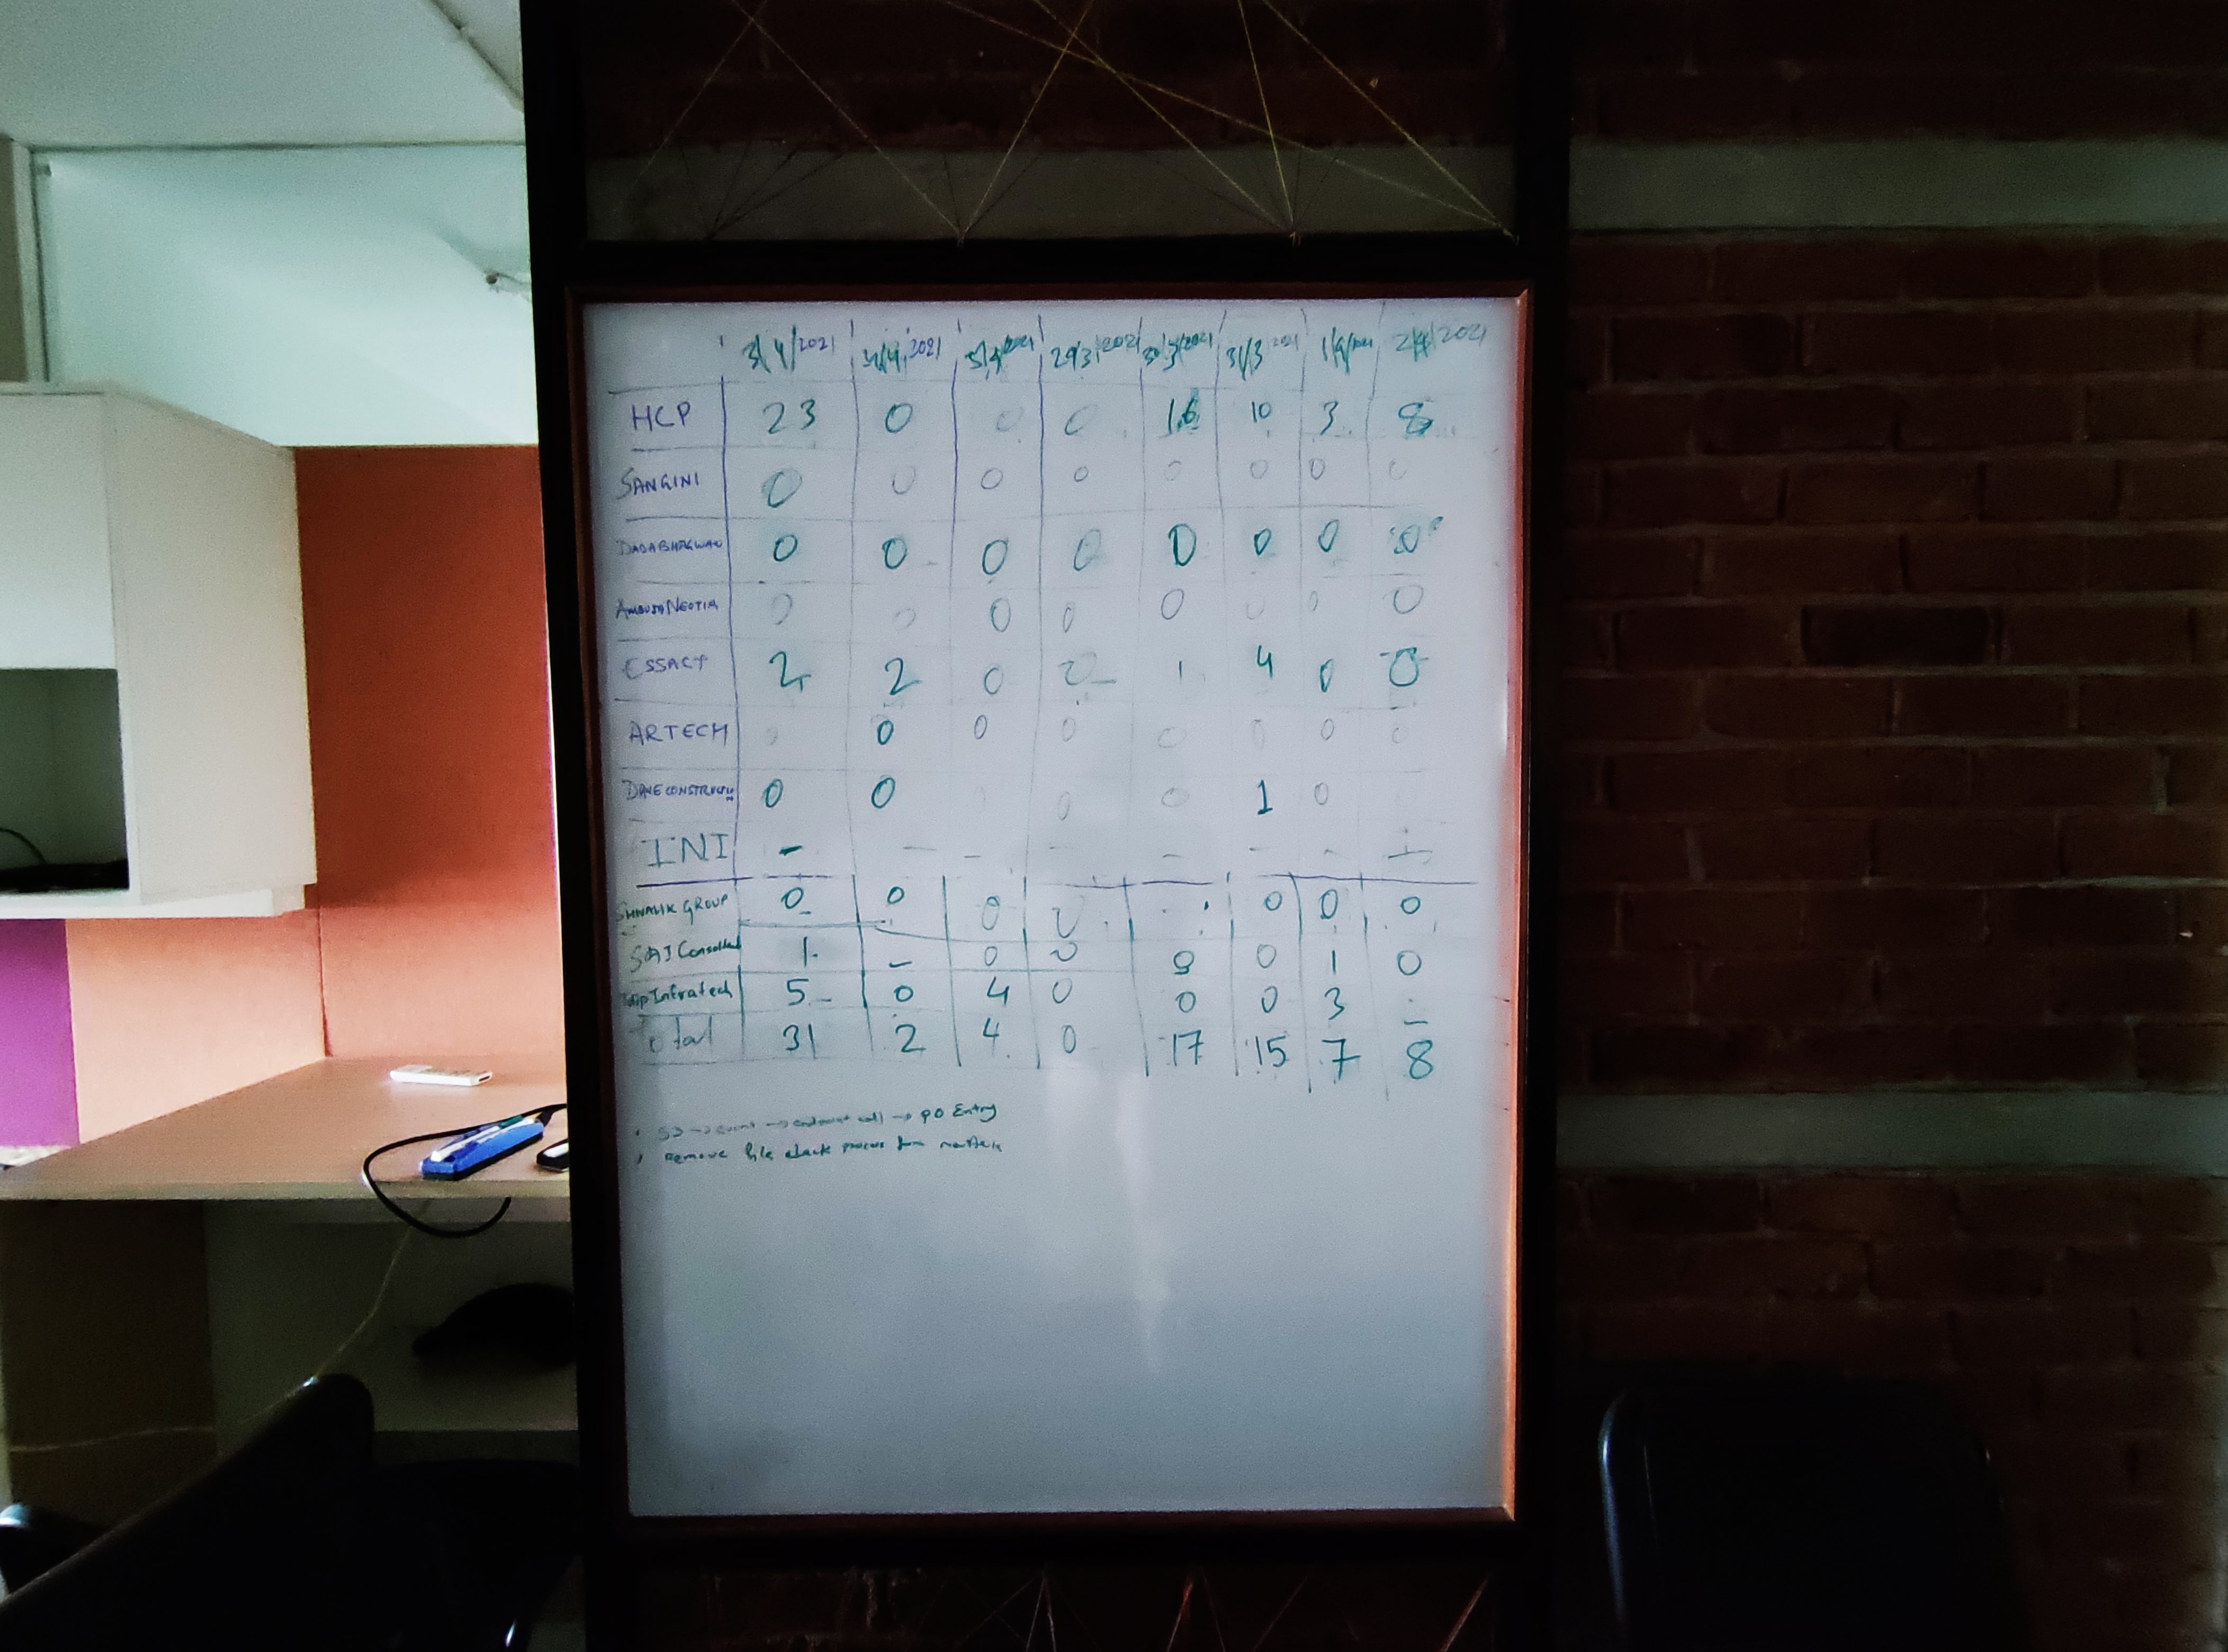 3/4/2021 4/4/2021 5/4/2021 29/3/2021 30/3/2021 31/3 2021 1/4/2021 2/4/2021
HCP 23 0 0 0 16 10 3 8
SANGINI 0 0 0 0 0 0 0 0
DADABHAGWAN 0 0 0 0 0 0 0 0
AMBUJA NEOTIA 0 0 0 0 0 0 0 0
ESSACT 2 2 0 0 1 4 0 0
ARTECH 0 0 0 0 0 0 0 0
0 0 0 0 1 0
INI - - - - - - - -
GROUP 0 0 0 0 0 0 0
SAI 1 - 0 0 0 0 1 0
Infratech 5 0 4 0 0 0 3 -
Total 31 2 4 0 17 15 7 8
→ → → PO Entry
Remove file process from